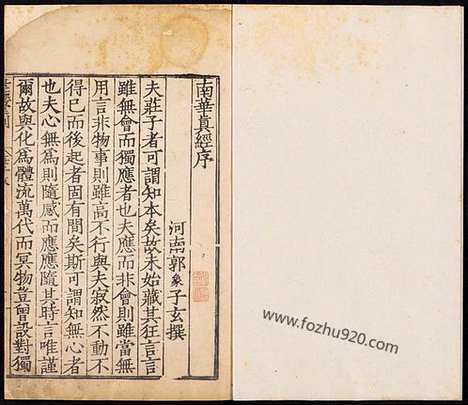 南華真經序
河南郭象子玄撰
夫莊子者可謂知本矣故未始藏其狂言言
雖無會而獨應者也夫應而非會則雖當無
用言非物事則雖高不行與夫寂然不動不
得已而後起者固有間矣斯可謂知無心者
也夫心無為則隨感而應應隨其時言唯謹
爾故與化為體流萬代而冥物豈曾設對獨
www.fozhu920.com